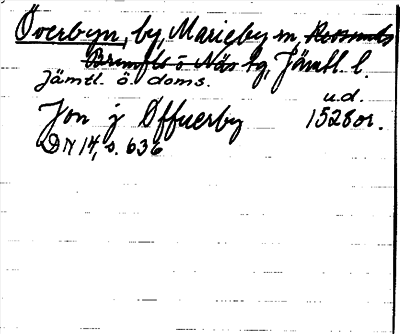 Överbyn, by, Marieby sn, Revsunds
Brunflo o Näs tg, Jämtl. l.
Jämtl. ö. doms.
u.d.
Jon j Øffuerby 1528 or.
DN 14, s. 636